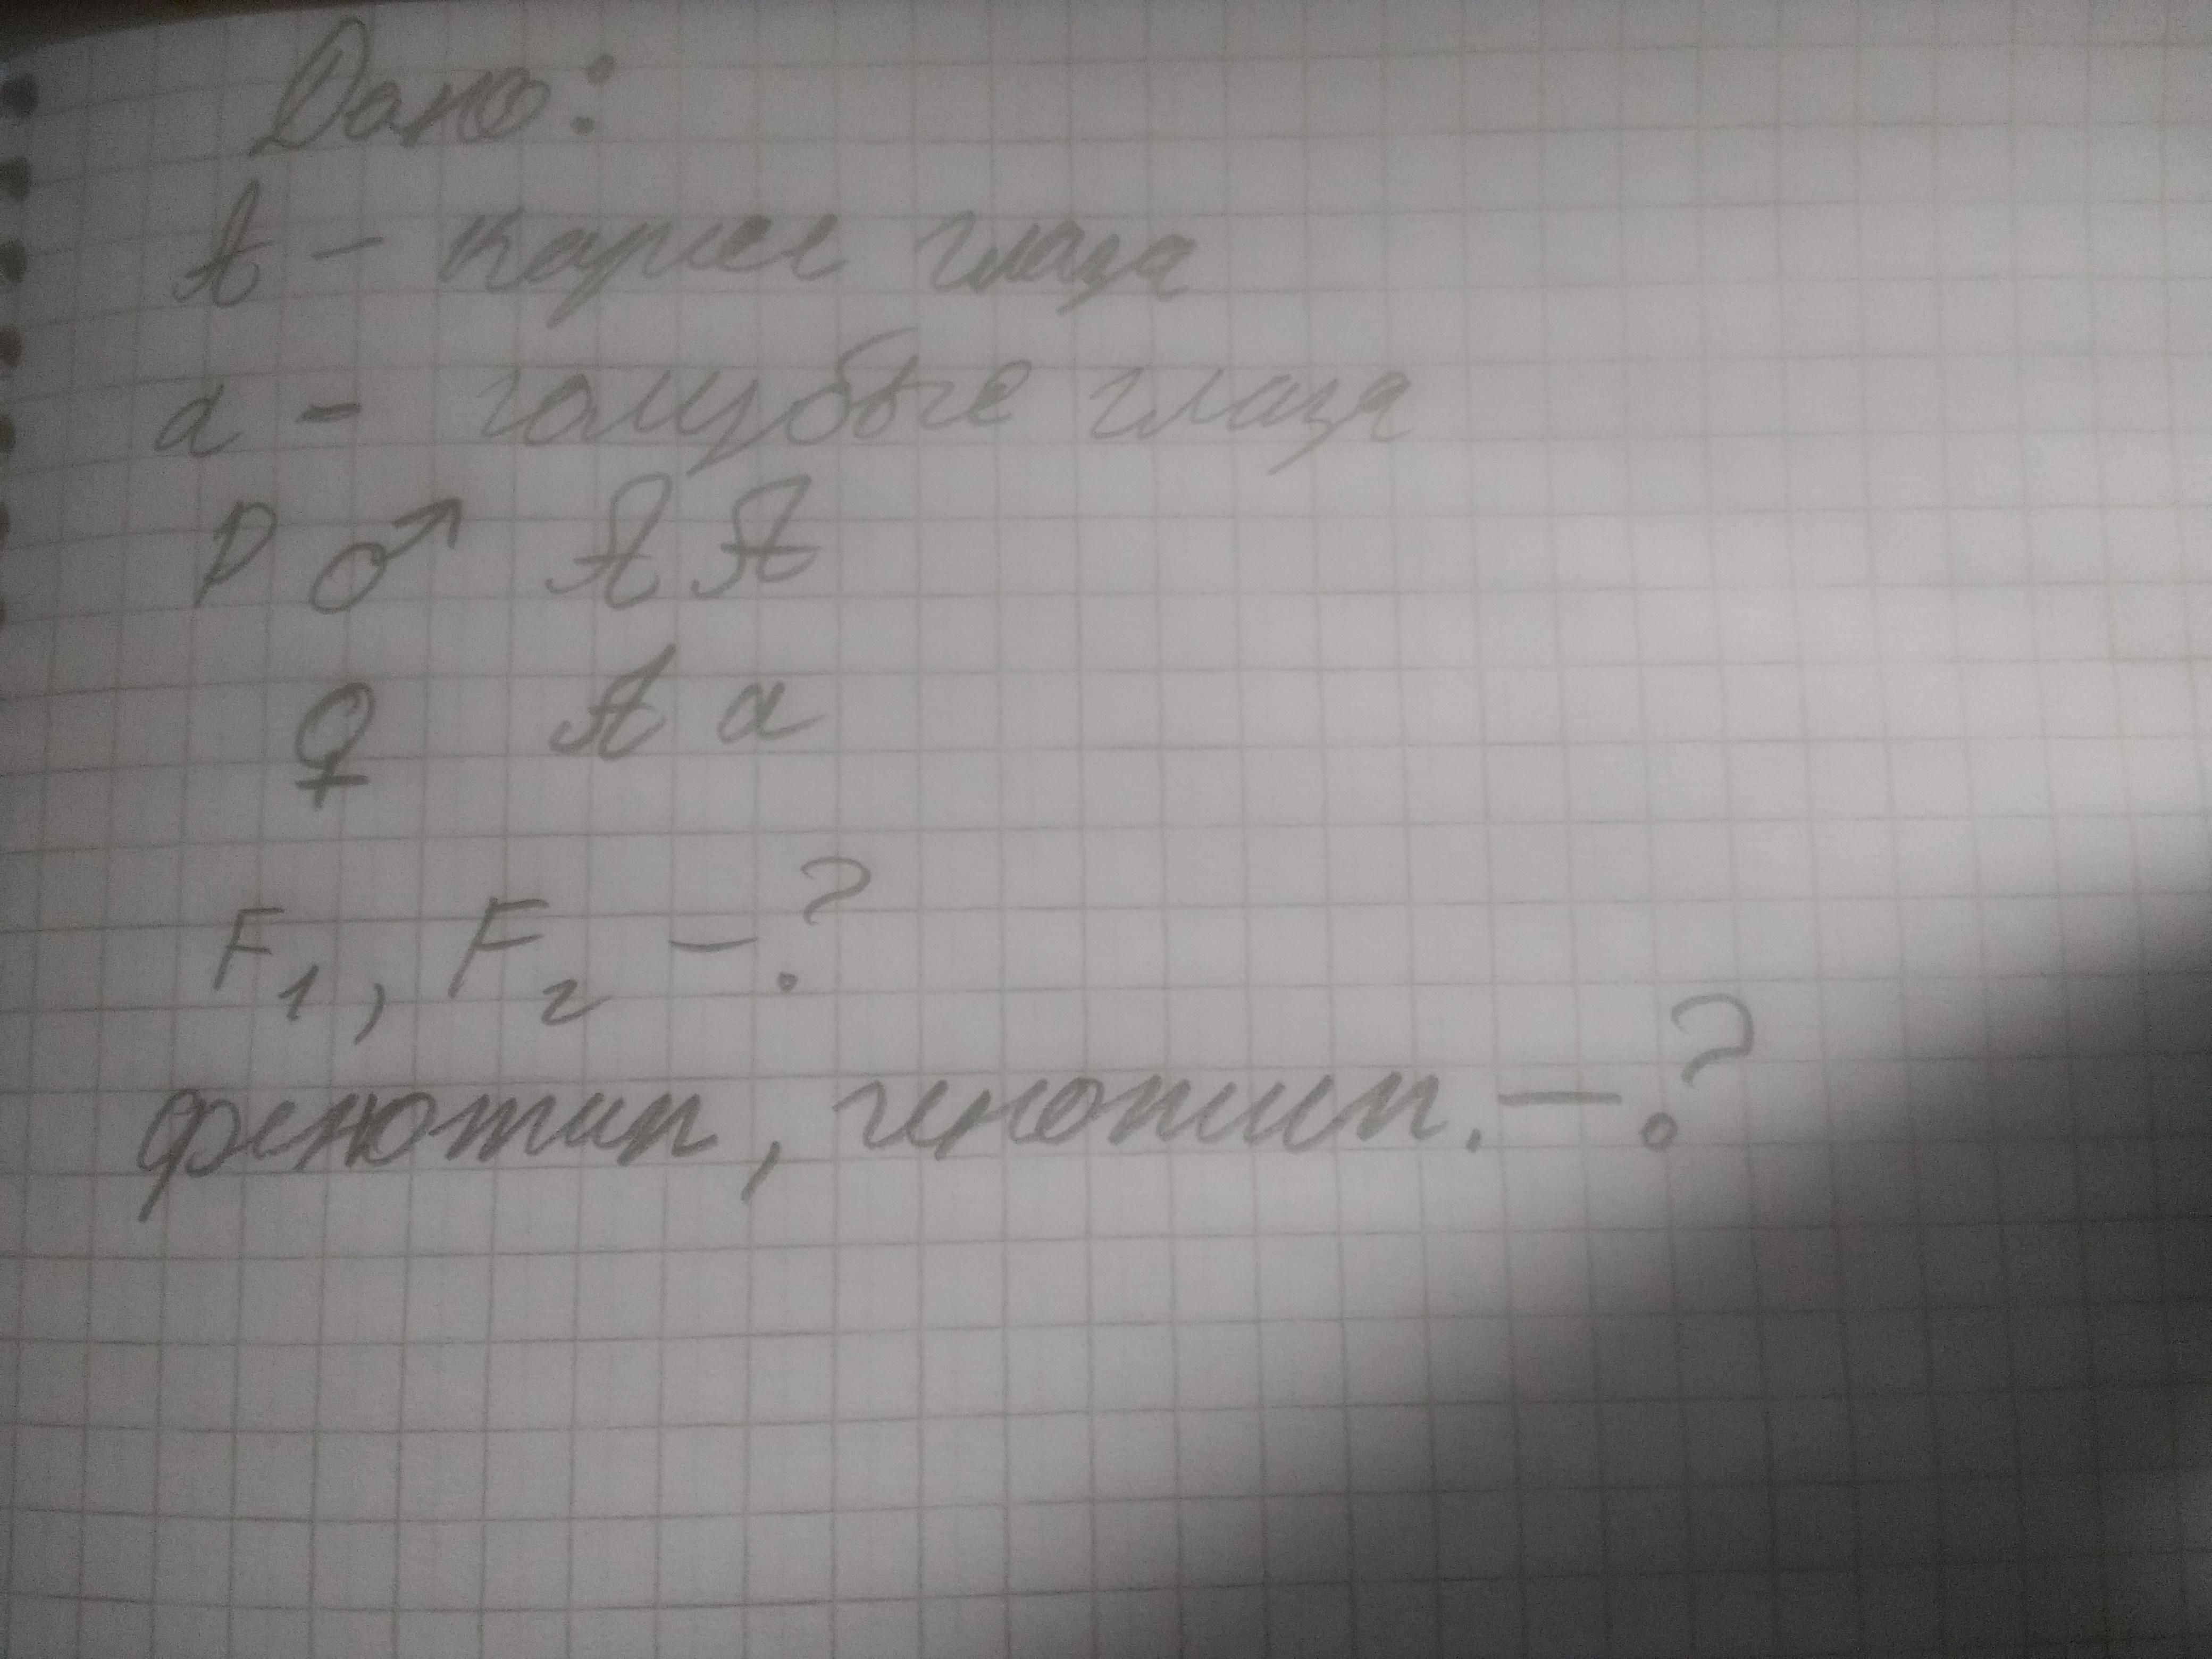 Дано:
A - карие глаза
a - голубые глаза
P ♂ A A
♀ A a
F1, F2 - ?
фенотип, генотип. - ?